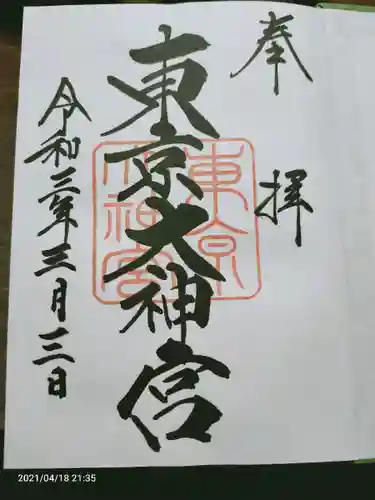 奉拝
東京大神宮
令和三年三月二三日
東京大神宮
2021/04/18 21:35